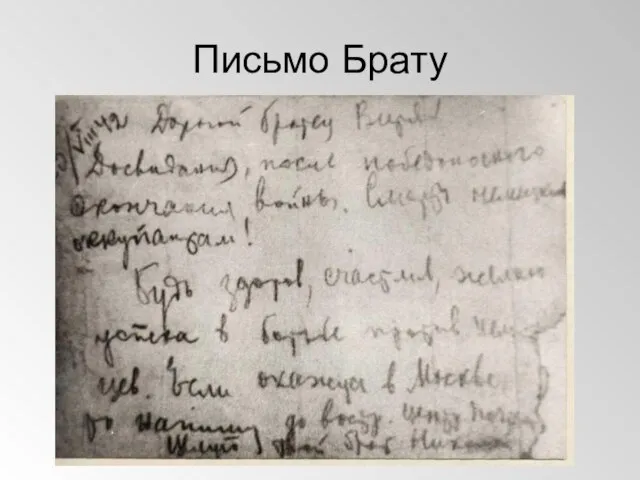 Письмо Брату
VIII 42 Дорогой братец
Досвидания, после победоносного
окончания войны. Смерть немецким
оккупантам!
Будь здоров, счастлив, желаю
успеха в борьбе против нем
цев. Если окажусь в Москве,
то напишу до востр.
твой брат